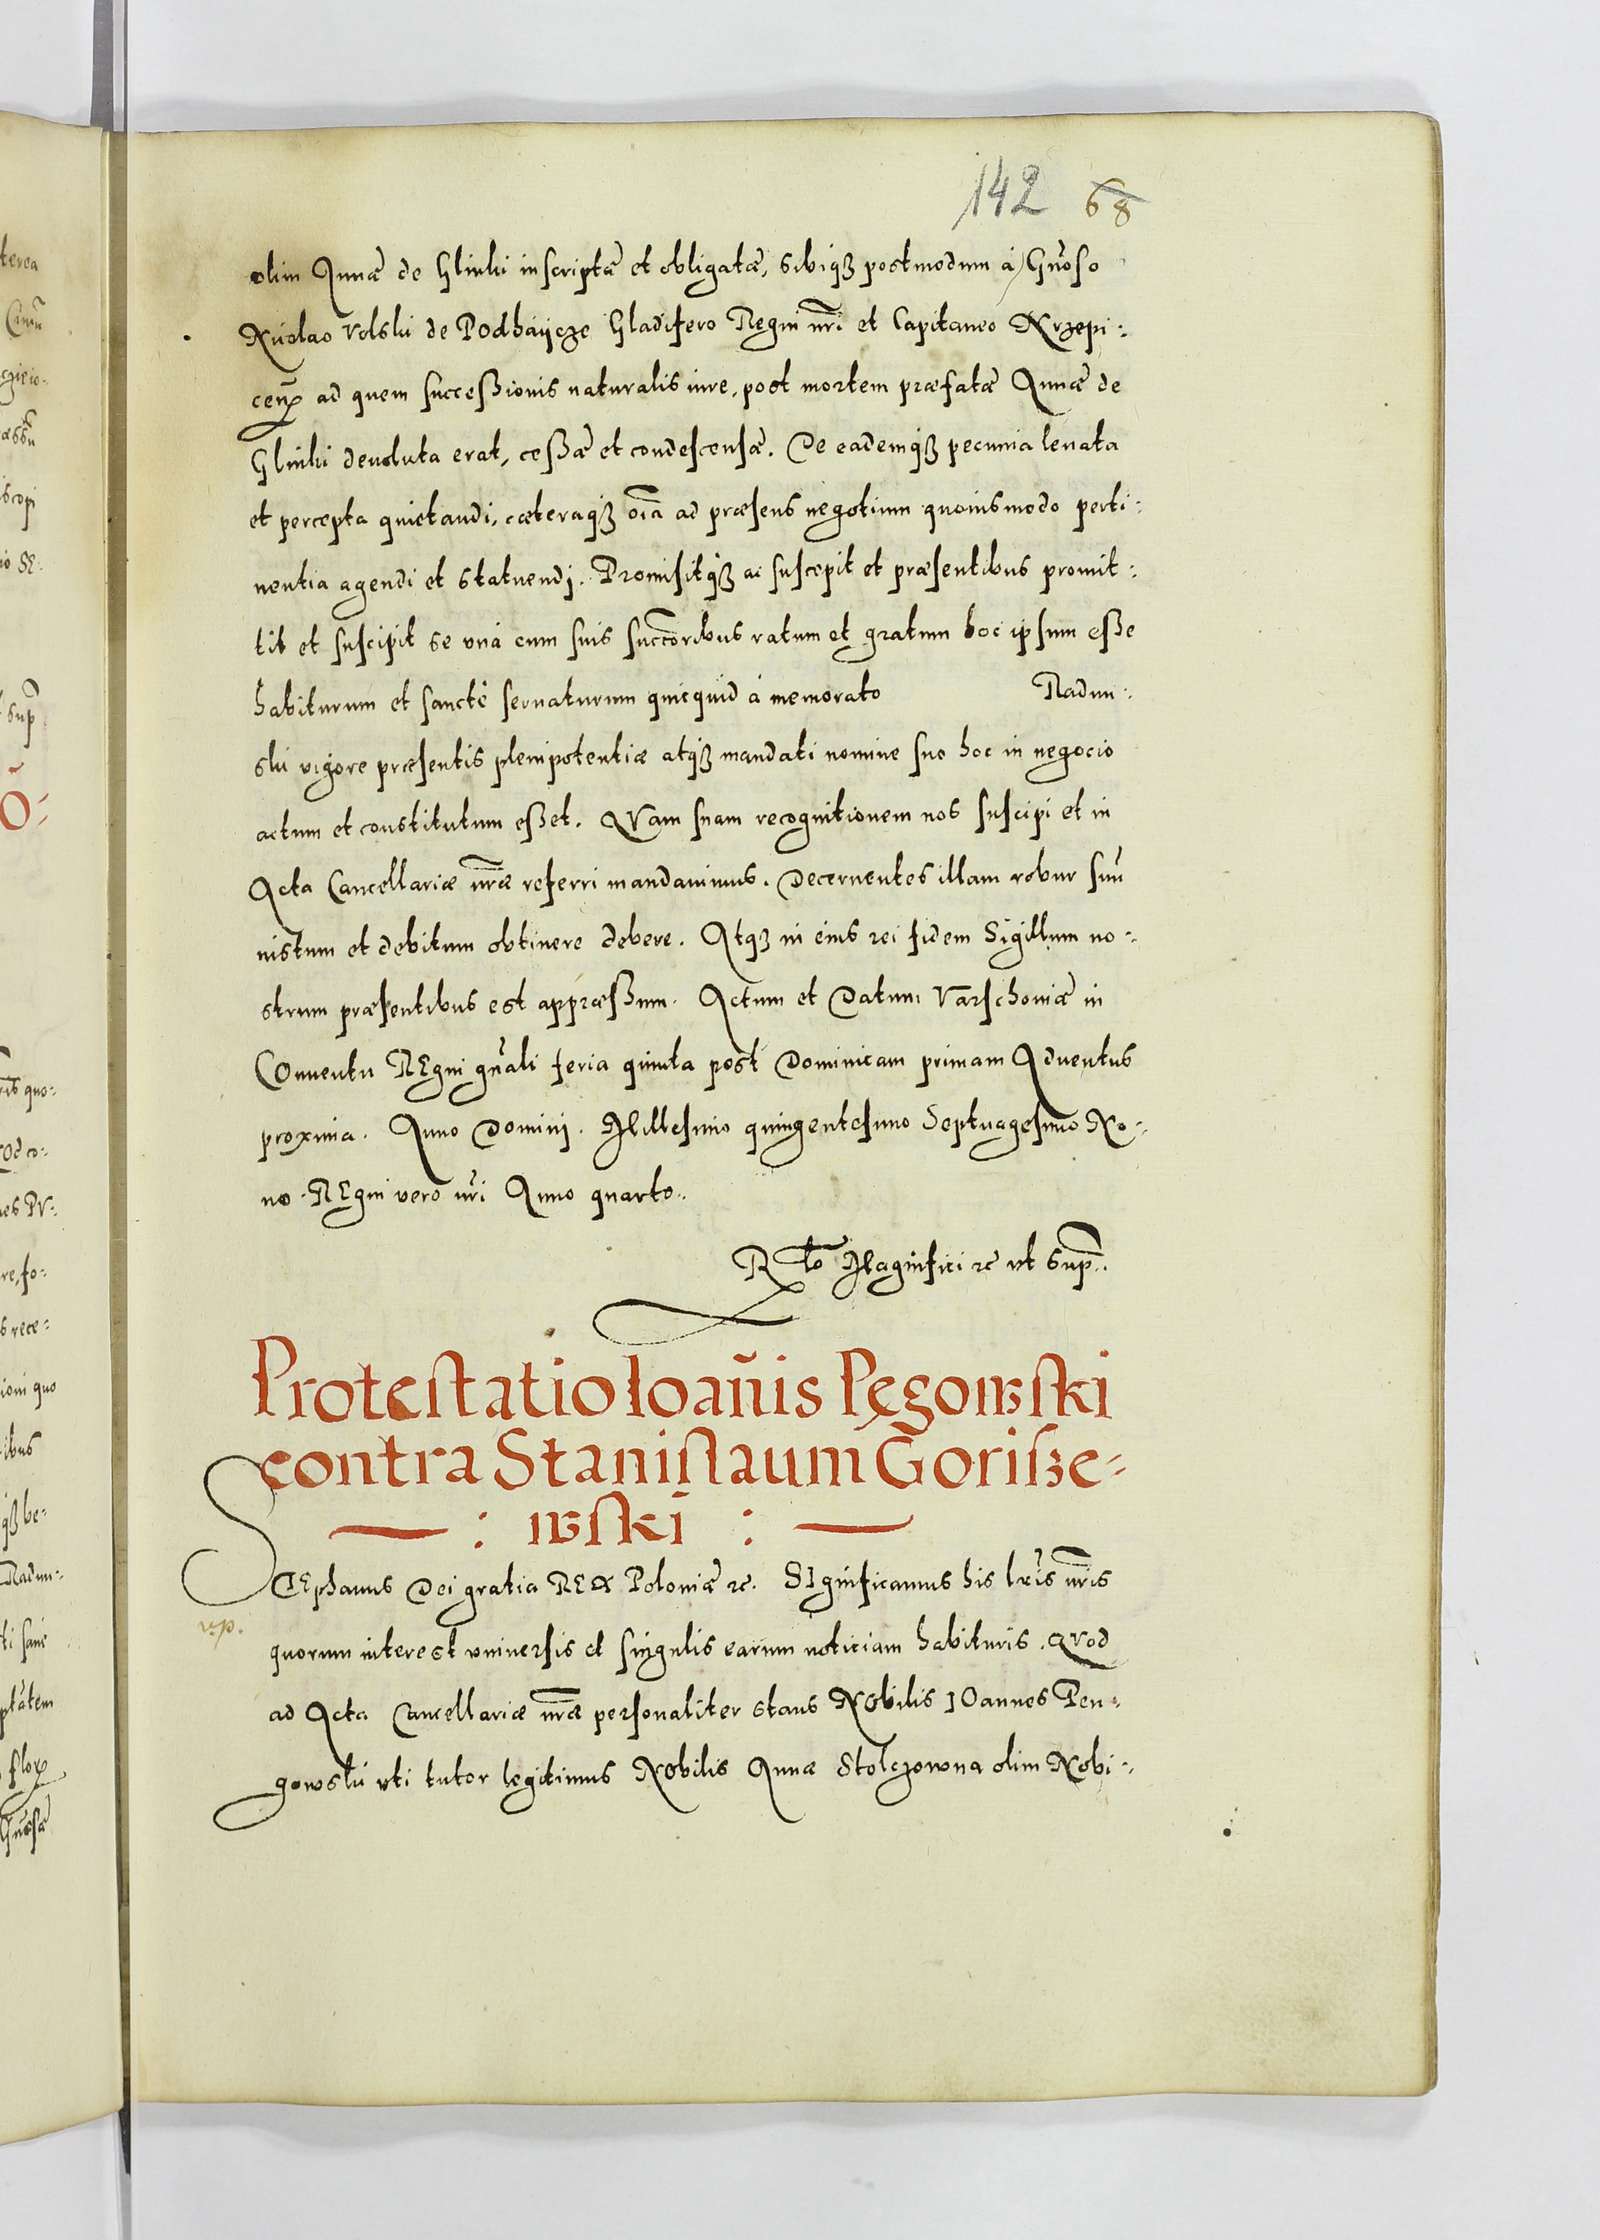 142 68
olim Annæ de Glinki inscriptæ et obligatæ, sibiqȝ postmodum à Gn̄oso
Nicolao Volski de Podhaÿcze Gladifero Regni nr̄i et Capitaneo Krzepi:
ceñ ad quem successionis naturalis iure, post mortem præfatæ Annæ de
Glinki deuoluta erat, cessæ et condescensæ. De eademqȝ pecunia leuata
et percepta quietandi, cæteraqȝ oīa ad præsens negotium quouismodo perti:
nentia agendi et statuendj. Promisitqȝ ac suscepit et præsentibus promit:
tit et suscipit se vnà cum suis succ̄oribus ratum et gratum hoc ipsum esse
habiturum et sanctè seruaturum quicquid à memorato Radun:
ski vigore præsentis plenipotentiæ atqȝ mandati nomine suo hoc in negocio
actum et constitutum esset. QVam suam recognitionem nos suscipi et in
Acta Cancellariæ nr̄æ referri mandauimus. Decernentes illam robur suū
iustum et debitum obtinere debere. Atqȝ in eius rei fidem Sigillum no:
strum præsentibus est appræssum. Actum et Datum Varschouiæ in
COnuentu REgni gn̄ali feria quinta post Dominicam primam Aduentus
proxima. Anno Dominj. Millesimo quingentesimo Septuagesimo No:
no. REgni vero nr̄i Anno quarto..
R̄to Magnifici ꝛc vt sup̄..
Protestatio Ioañis Pęgowski
contra Stanislaum Gorisze-
: wski :
STEphanus Dei gratia REX Poloniæ ꝛc. SIgnificamus his lr̄is nr̄is
v.p.
quorum interest vniuersis et singulis earum noticiam habituris. QVod
ad Acta Cancellariæ nr̄æ personaliter stans Nobilis IOannes Pen:
gowski vti tutor legitimus Nobilis Annæ Stolczowna olim Nobi: